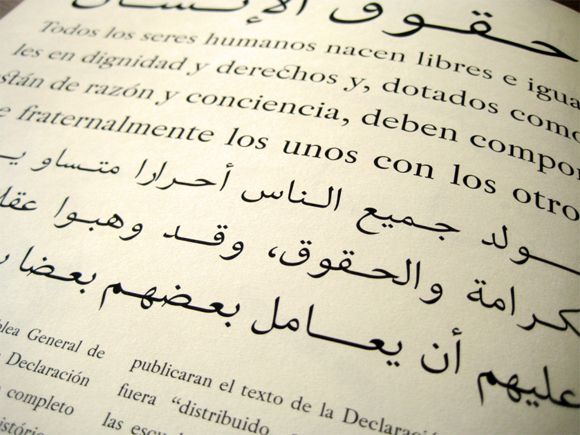 حقوق الإنسان
Todos los seres humanos nacen libres e igua
les en dignidad y derechos y, dotados como
stán de razón y conciencia, deben compor
e fraternalmente los unos con los otro
ـولد جميع الناس أحرارا متساويـ
كرامة والحقوق، وقد وهبوا عقلا
عليهم أن يعامل بعضهم بعضا
blea General de
Declaración
completo
publicaran el texto de la Declaració
fuera “distribuido,
las escu